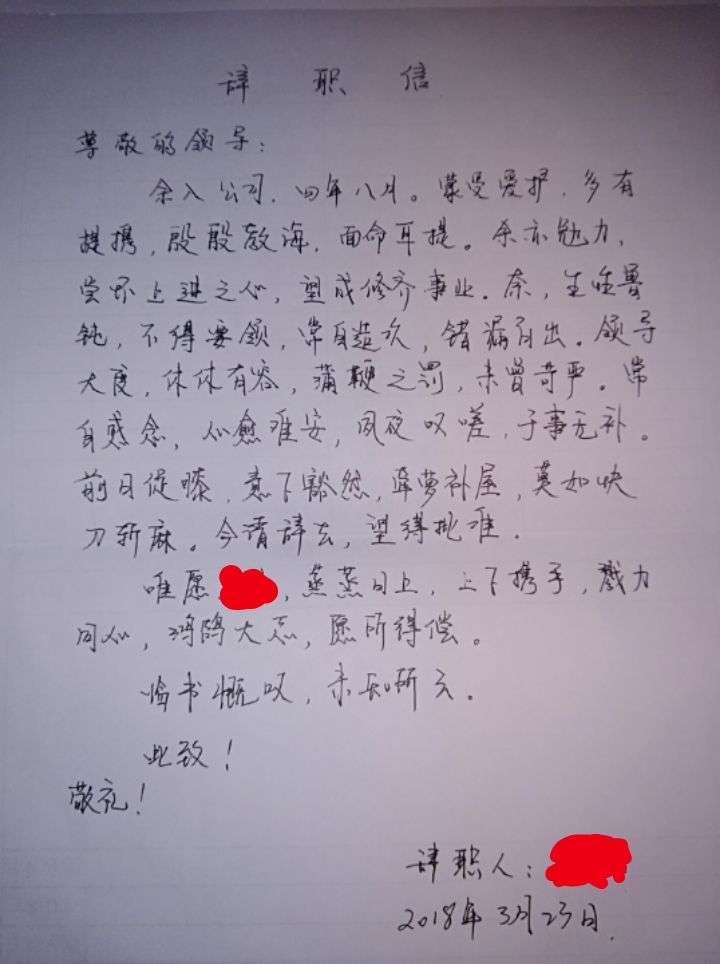 辞职信
尊敬的领导：
余入公司，四年八月。蒙受爱护，多有
提携，殷殷教诲，面命耳提。余亦勉力，
尝怀上进之心，望成修齐事业。奈，生性愚
钝，不得要领，常自造次，错漏百出。领导
大度，休休有容，蒲鞭之罚，未曾苛严。常
自感念，心愈难安，夙夜叹嗟，于事无补。
前日促膝，意下豁然，牵萝补屋，莫如快
刀斩麻。今请辞去，望得批准。
唯愿，蒸蒸日上，上下携手，戮力
同心，鸿鹄大志，愿所得偿。
临书慨叹，未知所云。
此致！
敬礼！
辞职人：
2018年3月23日